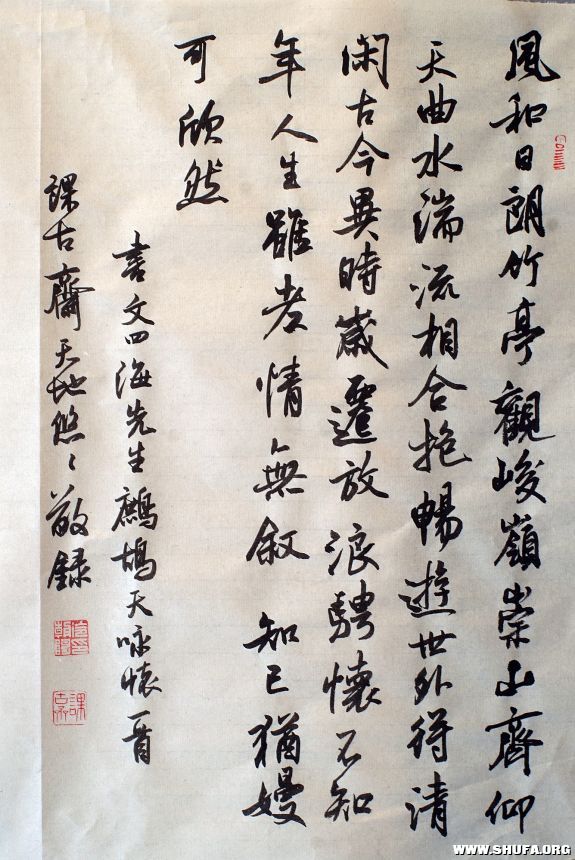 風和日朗竹亭觀峻嶺崇山齊仰
天曲水湍流相合抱暢遊世外得清
閑古今異時歲遷放浪騁懷不知
年人生雖老情無敘 知己猶嫚
可欣然
書文四海先生鷓鴣天咏懷一首
課古齋天地悠々敬録
WWW.SHUFA.ORG